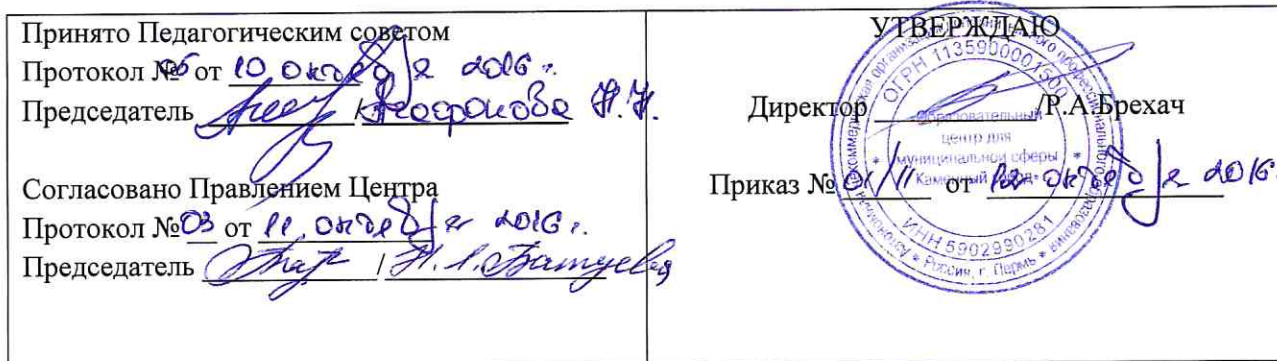 Принято Педагогическим советом
Протокол №05 от 10 октября 2016 г.
Председатель / Н.Н.
Согласовано Правлением Центра
Протокол №03 от 11 октября 2016 г.
Председатель /
УТВЕРЖДАЮ
Директор /Р.А.Брехач
Приказ № 01/11 от 12 октября 2016
ОГРН 1135900001500
Образовательный
центр для
муниципальной сферы
Каменный город
ИНН 5902990281
Россия, г. Пермь